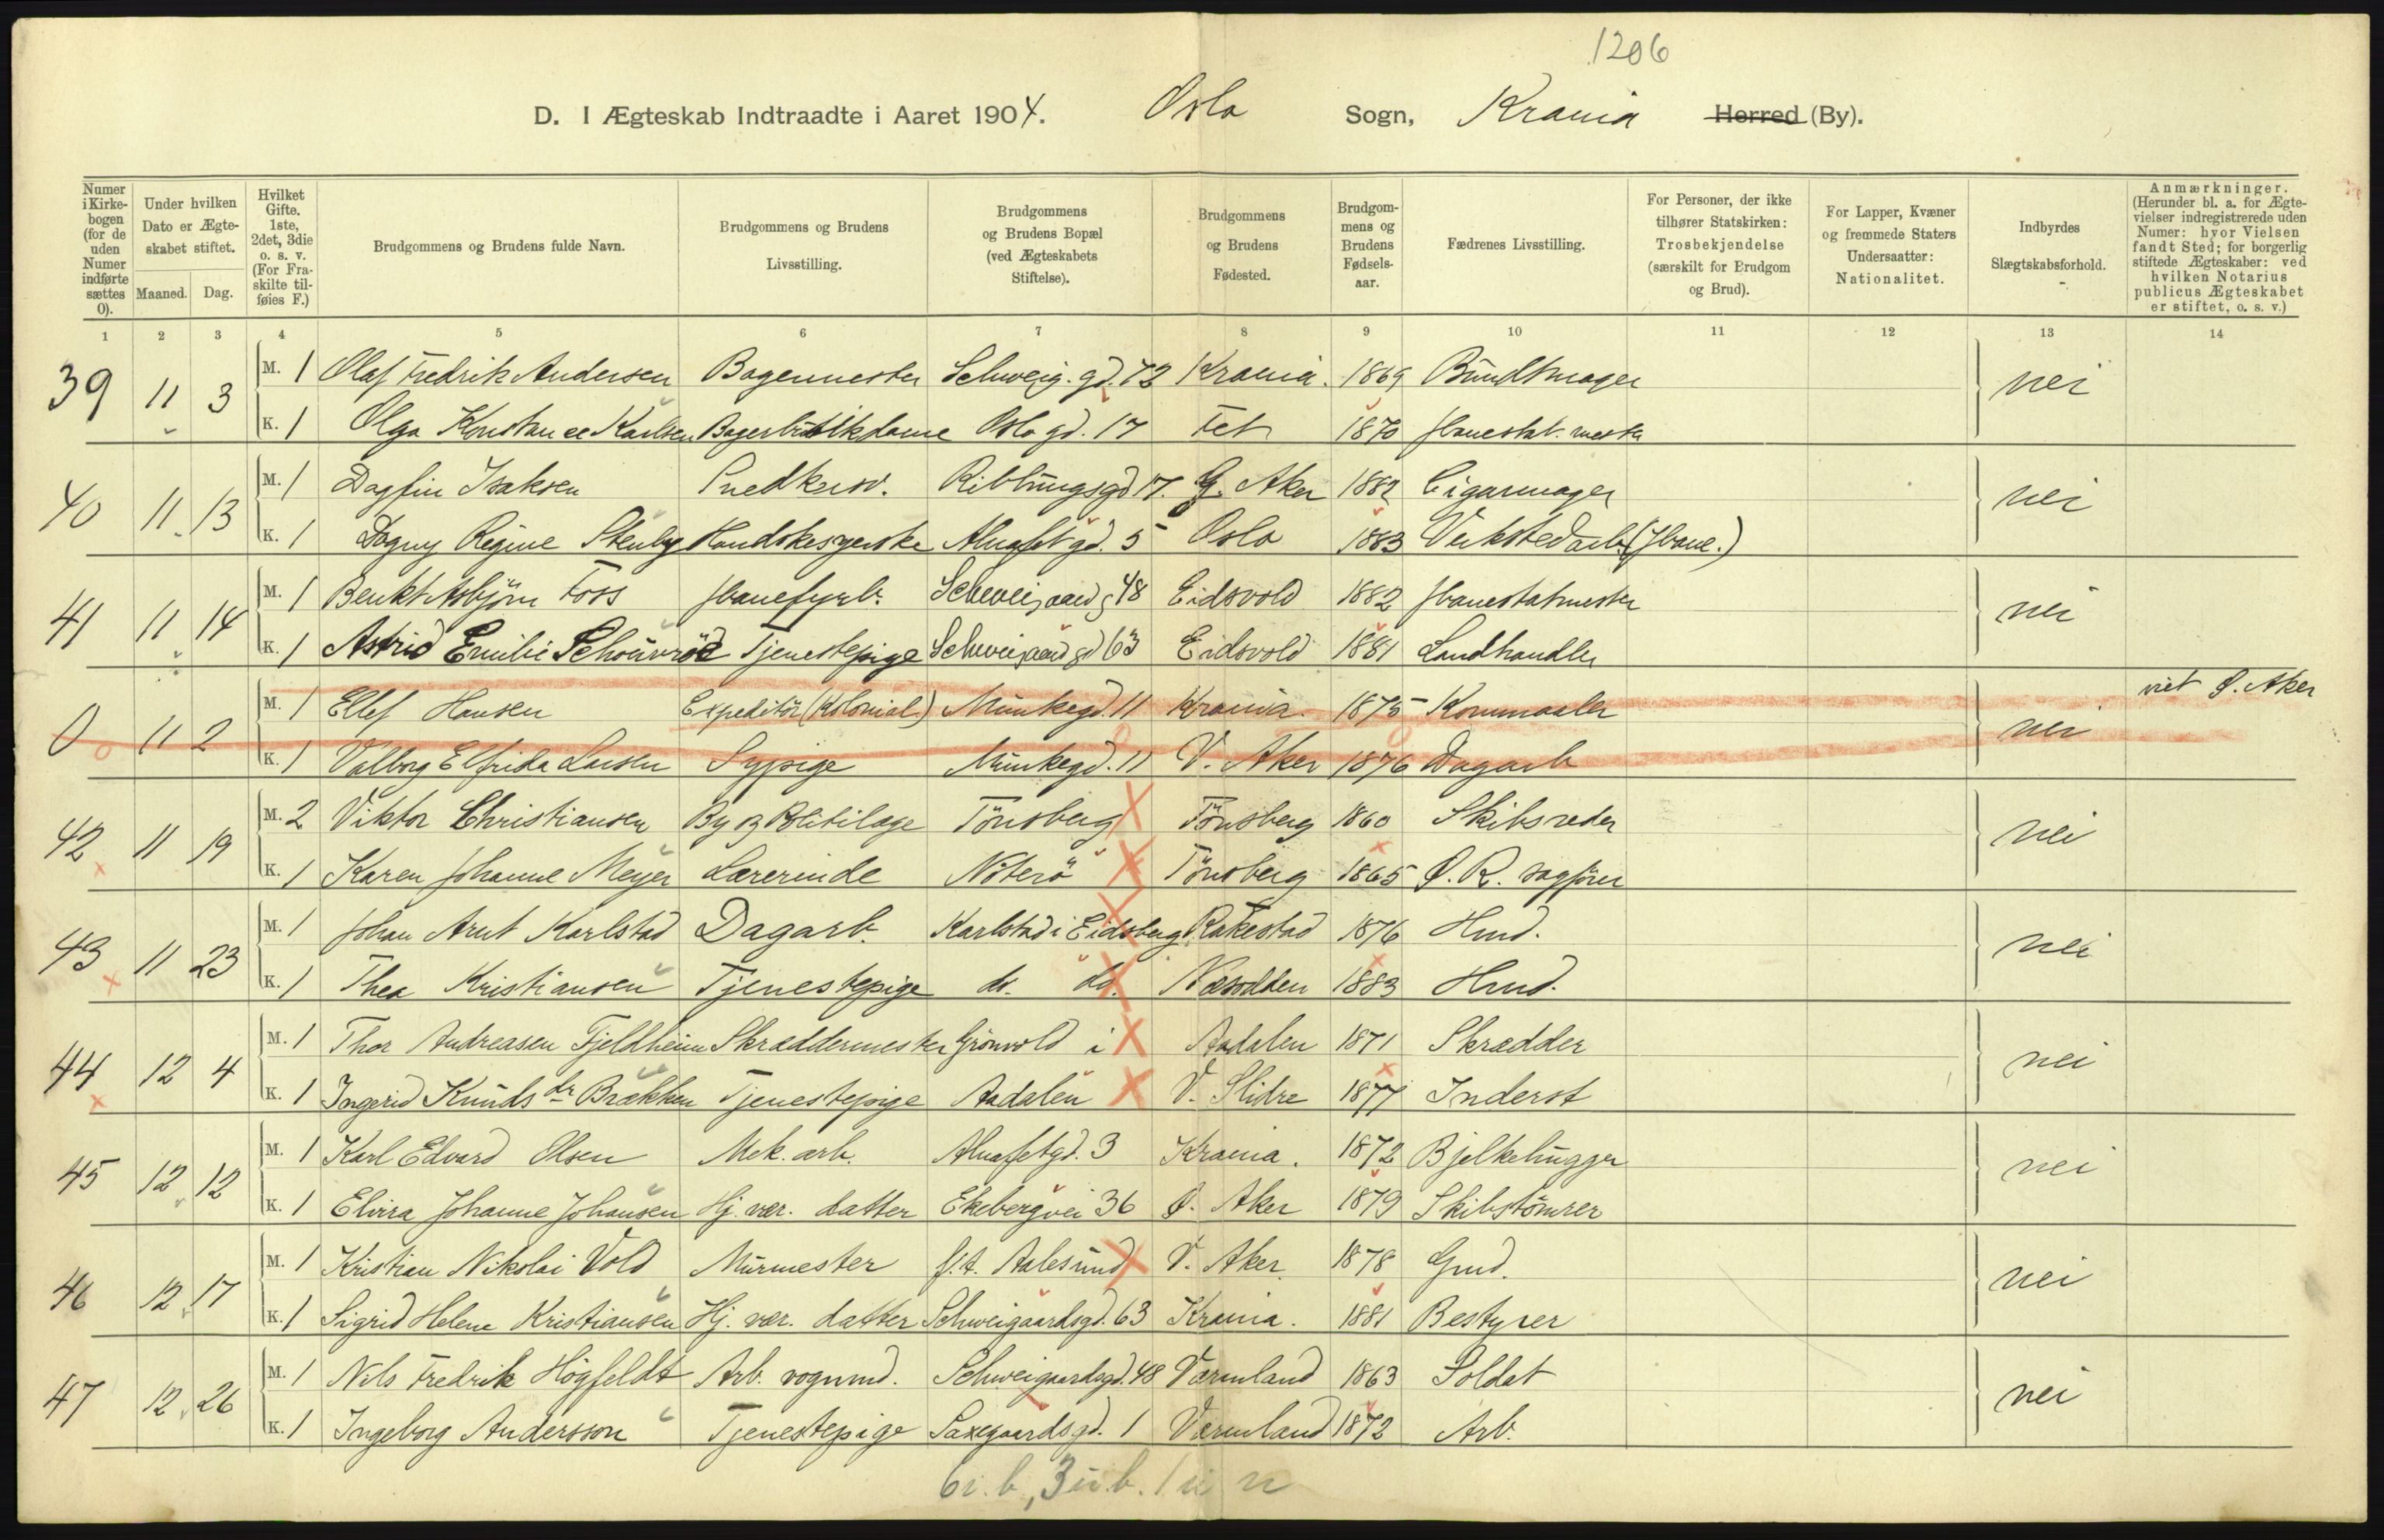 1206
D. I Ægteskab Indtraadte i Aaret 1904. Oslo Sogn, Krania Herred (By).
Numer i Kirkebogen (for de uden Numer indførte sættes 0).
Under hvilken Dato er Ægteskabet stiftet.
Maaned. Dag.
Hvilket Gifte. 1ste, 2det, 3die o. s. v. (For Fraskilte tilføies F.)
Brudgommens og Brudens fulde Navn.
Brudgommens og Brudens Livsstilling.
Brudgommens og Brudens Bopæl (ved Ægteskabets Stiftelse).
Brudgommens og Brudens Fødested.
Brudgommens og Brudens Fødselsaar.
Fædrenes Livsstilling.
For Personer, der ikke tilhører Statskirken: Trosbekjendelse (særskilt for Brudgom og Brud).
For Lapper, Kvæner og fremmede Staters Undersaatter: Nationalitet.
Indbyrdes Slægtskabsforhold.
Anmærkninger. (Herunder bl. a. for Ægtevielser indregistrerede uden Numer: hvor Vielsen fandt Sted; for borgerlig stiftede Ægteskaber: ved hvilken Notarius publicus Ægteskabet er stiftet, o. s. v.)
1 2 3 4 5 6 7 8 9 10 11 12 13 14
39 11 3 M. 1 Olaf Fredrik Andersen Bagermester Schweig. gd. 72 Krania. 1869 Bundtmager nei
K. 1 Olga Konstance Karlsen Bagerbutikdame Oslo gd. 17 Fet 1870 Jbanestat. mester
40 11 13 M. 1 Dagfin Isaksen Snedkersv. Ribbungsgd 17. G. Aker 1882 Cigarmager nei
K. 1 Dagny Regine Stenby Handskesyerske Alnafetgd. 5 Oslo 1883 Verkstedarb. (Jbane.)
41 11 14 M. 1 Benkt Asbjörn Foss Jbanefyrb. Schweigaardsg 48 Eidsvold 1882 Jbanestatmester nei
K. 1 Astrid Emilie Schouvröe Tjenestepige Schweigaardsgd 63 Eidsvold 1881 Landhandler
0 11 2 M. 1 Ellef Hansen Expeditör (Kolonial.) Munkegd. 11 Krania. 1875 Kornmaaler nei viet Ø. Aker
K. 1 Valborg Elfrida Larsen Sypige Munkegd. 11 V. Aker 1876 Dagarb
42 11 19 M. 2 Viktor Christiansen By og Politilæge Tönsberg Tönsberg 1860 Skibsreder nei
K. 1 Karen Johanne Meyer Lærerinde Nöterö Tönsberg 1865 O. R. sagförer
43 11 23 M. 1 Johan Arnt Karlstad Dagarb. Karlstad i Eidsberg Rakkestad 1876 Hmd. nei
K. 1 Thea Kristiansen Tjenestepige do. do. Næsodden 1883 Hmd.
44 12 4 M. 1 Thor Andreasen Fjeldheim Skræddermester Grönvold i Aadalen 1871 Skrædder nei
K. 1 Ingerid Knuds dr Brækken Tjenestepige Aadalen V. Slidre 1877 Inderst
45 12 12 M. 1 Karl Edvard Olsen Mek. arb. Alnafetgd. 3 Krania. 1872 Bjelkehugger nei
K. 1 Elvira Johanne Johansen Hj. vær. datter Ekebergvei 36 Ø. Aker 1879 Skibstömrer
46 12 17 M. 1 Kristian Nikolai Vold Murmester f. t. Aalesund V. Aker 1878 Gmd. nei
K. 1 Sigrid Helene Kristiansen Hj. vær. datter Schweigaardsgd. 63 Krania. 1881 Bestyrer
47 12 26 M. 1 Nils Fredrik Högfeldt Arb. vognmd. Schweigaardsgd. 48 Værmland 1863 Soldat nei
K. 1 Ingeborg Andersson Tjenestepige Saxegaardsgd. 1 Værmland 1872 Arb.
6 i. b., 3 u. b.